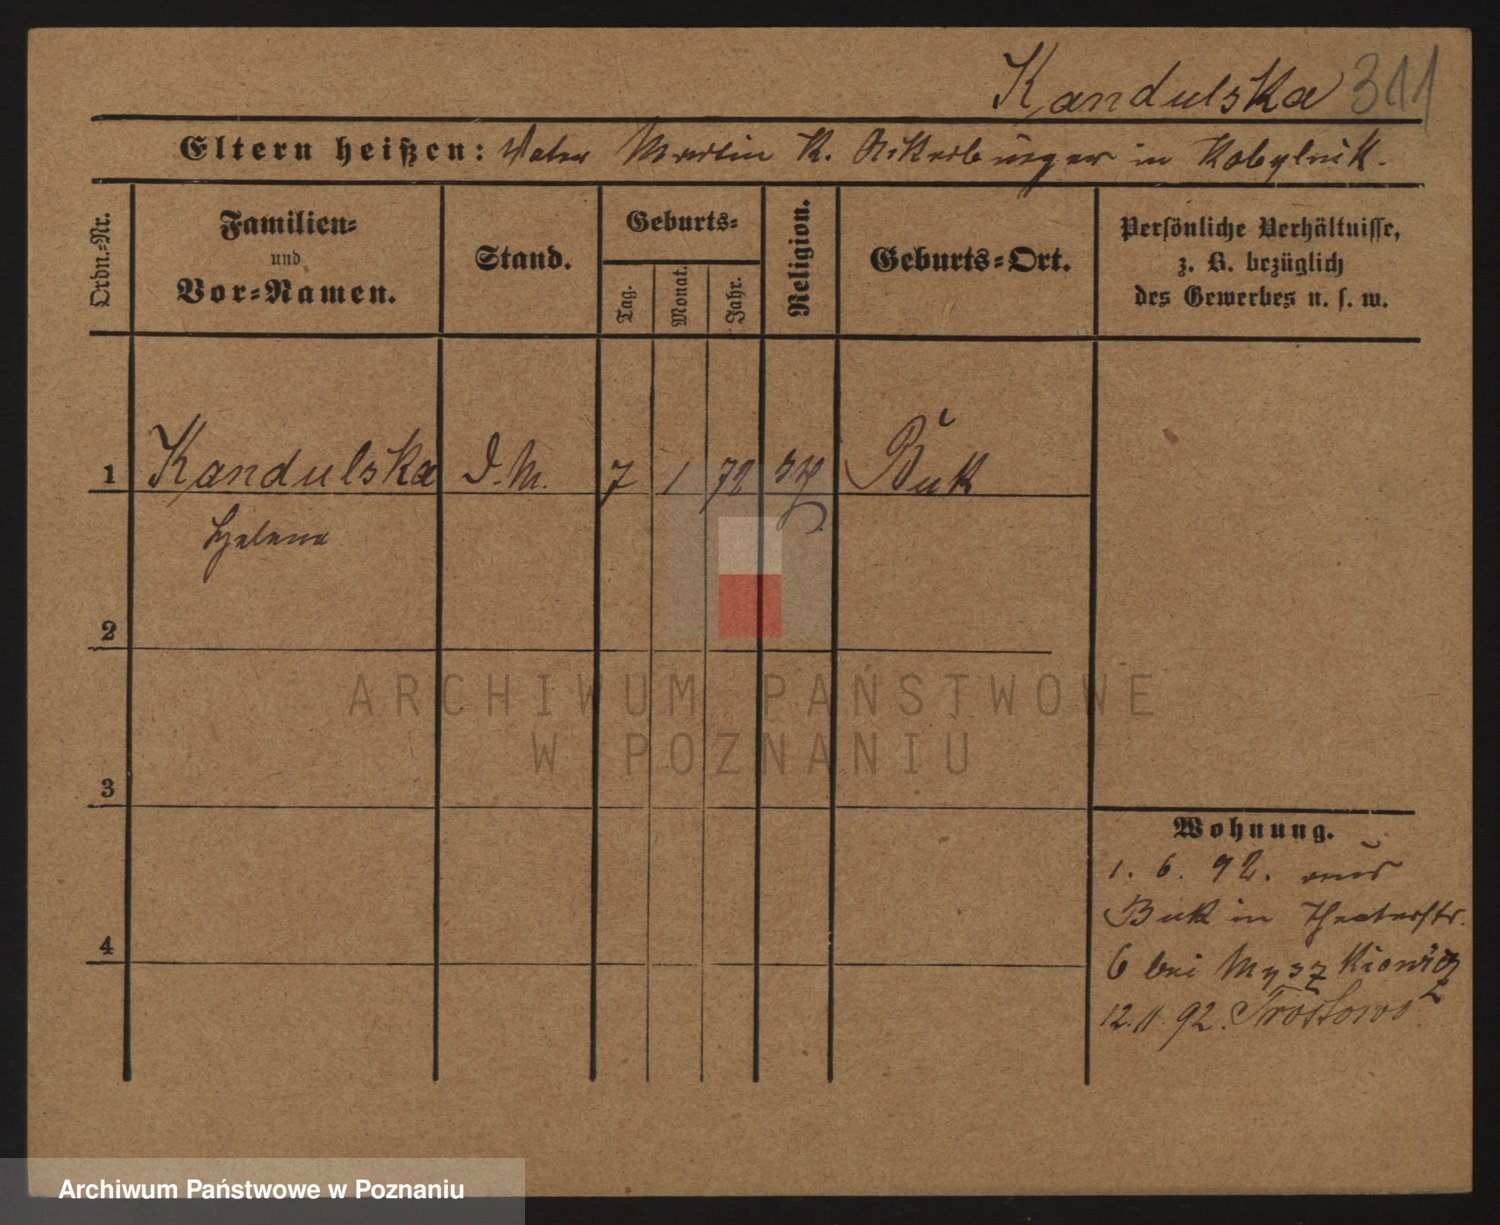 Kandulska 311
Eltern heißen: Vater Martin K. Ackerbürger in Kobylnik.
Ordn.-Nr.
Familien-
und
Vor-Namen.
Stand.
Geburts-
Tag.
Monat.
Jahr.
Religion.
Geburts-Ort.
Persönliche Verhältnisse,
z. B. bezüglich
des Gewerbes u. s. w.
1 Kandulska D.M. 7 1 72 Buk
Helena
2
3
4
Wohnung.
1. 6. 92. aus
Buk in Theaterstr.
6 bei Myszkiewicz
12. 11. 92.
ARCHIWUM PAŃSTWOWE
W POZNANIU
Archiwum Państwowe w Poznaniu